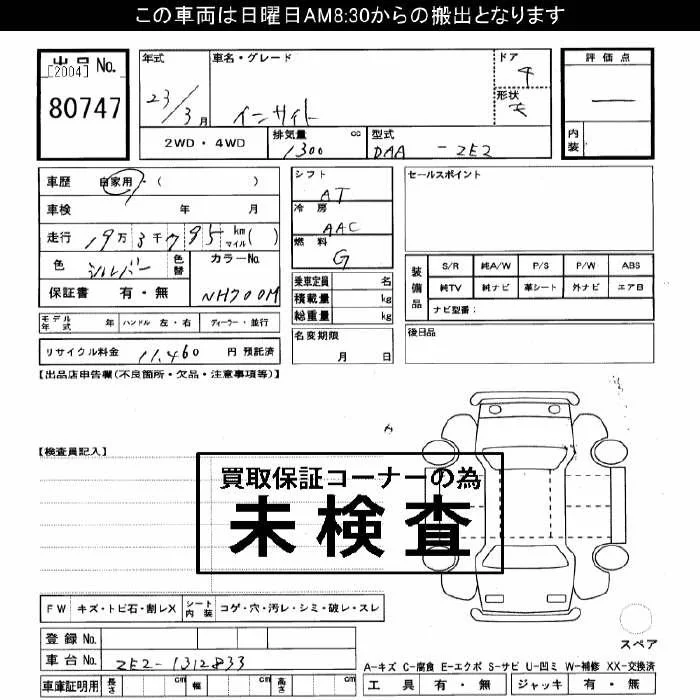 この車両は日曜日AM8:30からの搬出となります
出品 No.
[2004]
80747
年式
23/3月
車名・グレード
インサイト
ドア
4
形状
評価点
—
内装
2WD・4WD
排気量 cc
1300
型式
DAA - ZE2
車歴 自家用・( )
車検 年 月
走行 19万3千795 km マイル( )
色 シルバー
色替
カラーNo.
NH700M
保証書 有・無
シフト
AT
冷房
AAC
燃料
G
乗車定員 名
積載量 kg
総重量 kg
セールスポイント
装備品
S/R 純A/W P/S P/W ABS
純TV 純ナビ 革シート 外ナビ エアB
ナビ型番:
モデル年式 年 ハンドル 左・右 ディーラー・並行
名変期限
月 日
後日品
リサイクル料金 11,460 円 預託済
【出品店申告欄(不良箇所・欠品・注意事項等)】
【検査員記入】
買取保証コーナーの為
未検査
FW キズ・トビ石・割レX
シート内装 コゲ・穴・汚レ・シミ・破レ・スレ
登録 No.
車台 No. ZE2-1312833
車庫証明用 長さ cm 幅 cm 高さ cm
スペア
A-キズ C-腐食 E-エクボ S-サビ U-凹ミ W-補修 XX-交換済
工具 有・無 ジャッキ 有・無